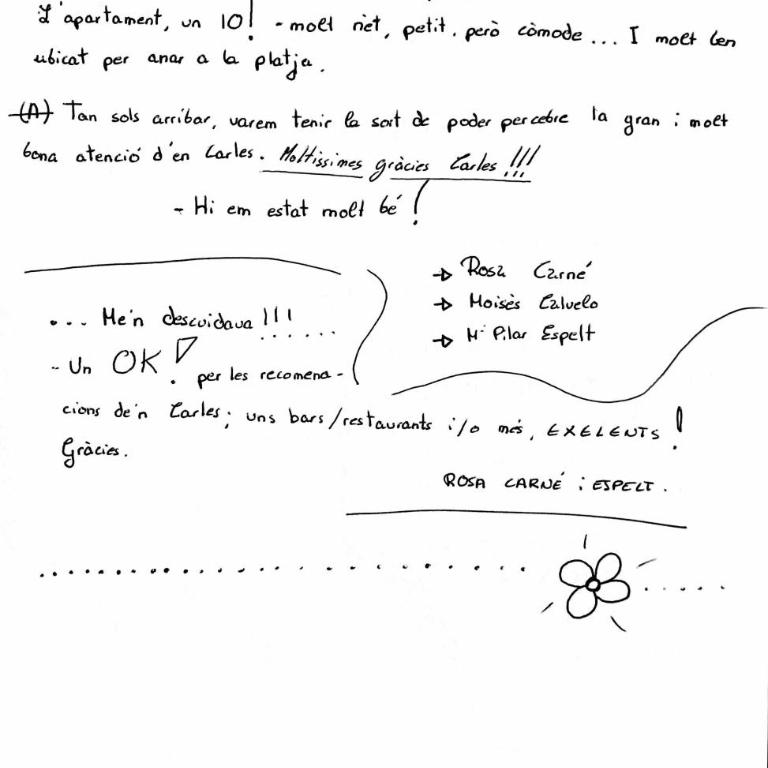 L'apartament, un 10! - molt net, petit. però còmode... I molt ben
ubicat per anar a la platja.
(A) Tan sols arribar, varem tenir la sort de poder percebre la gran i molt
bona atenció d'en Carles. Moltissimes gràcies Carles!!!
- Hi em estat molt bé!
→ Rosa Carné
→ Moisès Calvelo
→ Mª Pilar Espelt
... Me'n descuidava!!!
......
- Un OK! per les recomena-
cions de'n Carles; uns bars/restaurants i/o més, EXELENTS!
Gràcies.
ROSA CARNÉ i ESPELT.